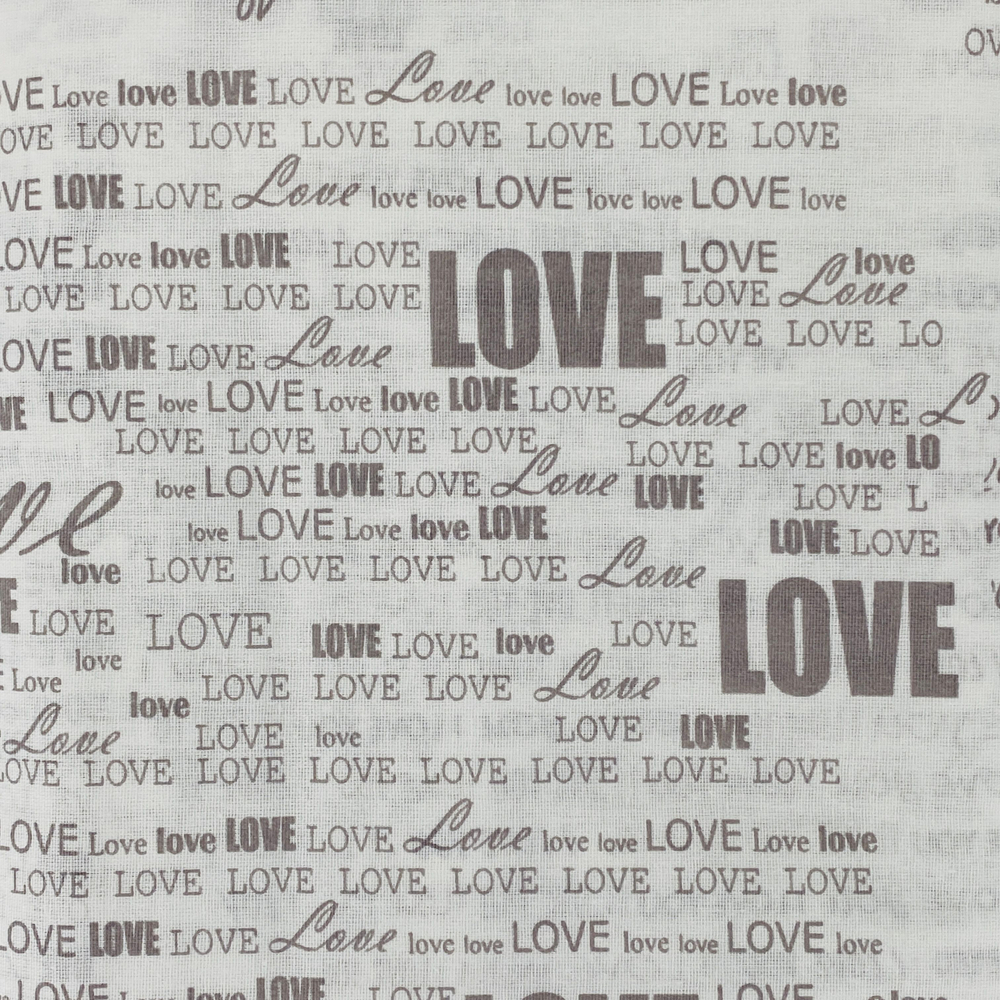 OV
OV
OVE Love love LOVE LOVE Love love love LOVE Love love
OVE LOVE LOVE LOVE LOVE LOVE LOVE LOVE
VE LOVE LOVE Love love love LOVE love love LOVE love
LOVE Love love LOVE LOVE LOVE LOVE love
LOVE LOVE LOVE LOVE LOVE Love
LOVE LOVE LO
LOVE LOVE LOVE Love
VE LOVE love LOVE Love love LOVE LOVE Love LOVE L
LOVE LOVE LOVE LOVE LOVE LOVE love LO
love LOVE LOVE LOVE Love LOVE LOVE L
ve love LOVE Love love LOVE LOVE LOVE
love LOVE LOVE LOVE LOVE Love LOVE
E LOVE LOVE LOVE LOVE love LOVE
love
E Love LOVE LOVE LOVE Love
love
Love LOVE love LOVE LOVE
LOVE LOVE LOVE LOVE LOVE LOVE LOVE LOVE
LOVE Love love LOVE LOVE Love love love LOVE Love love
LOVE LOVE LOVE LOVE LOVE LOVE LOVE LOVE
LOVE LOVE LOVE Love love love LOVE love love LOVE love
LOVE Love love LOVE LOVE LOVE LOVE love